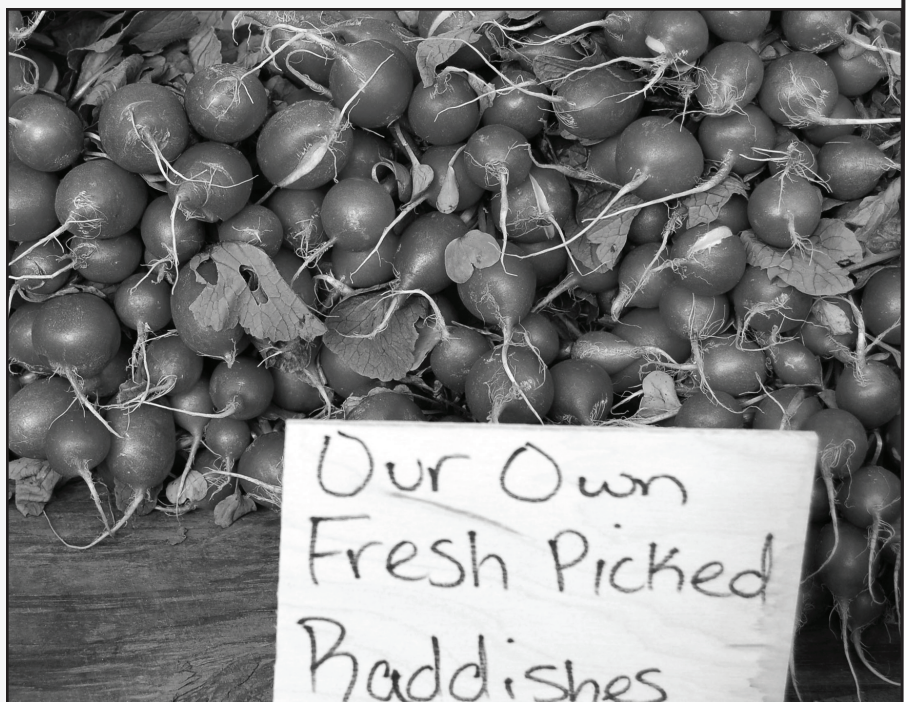 Our Own
Fresh Picked
Raddishes